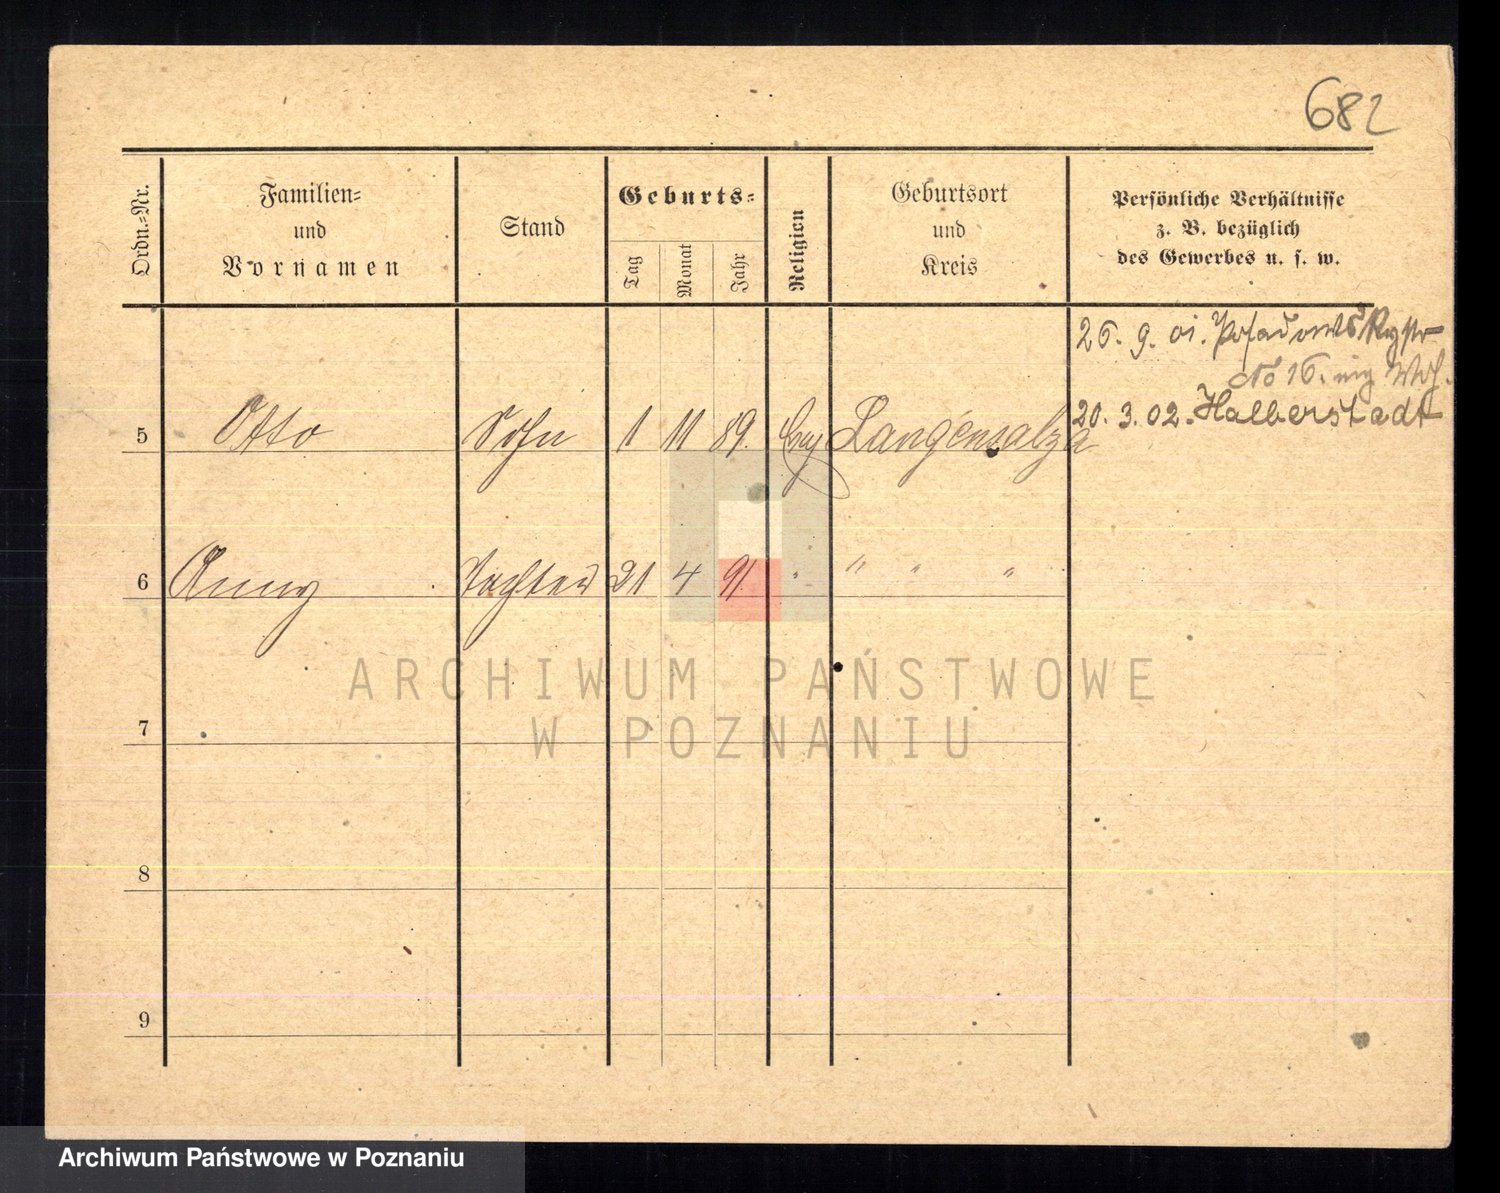 682
Ordn.-Nr.
Familien-
und
Vornamen
Stand
Geburts-
Tag
Monat
Jahr
Religion
Geburtsort
und
Kreis
Persönliche Verhältnisse
z. B. bezüglich
des Gewerbes u. s. w.
26. 9. 01.
No 16.
20. 3. 02. Halberstadt
5 Otto Sohn 1 11 89. Evg Langensalza
6 Anny Tochter 21 4 91. " " " "
7
8
9
ARCHIWUM PAŃSTWOWE
W POZNANIU
Archiwum Państwowe w Poznaniu